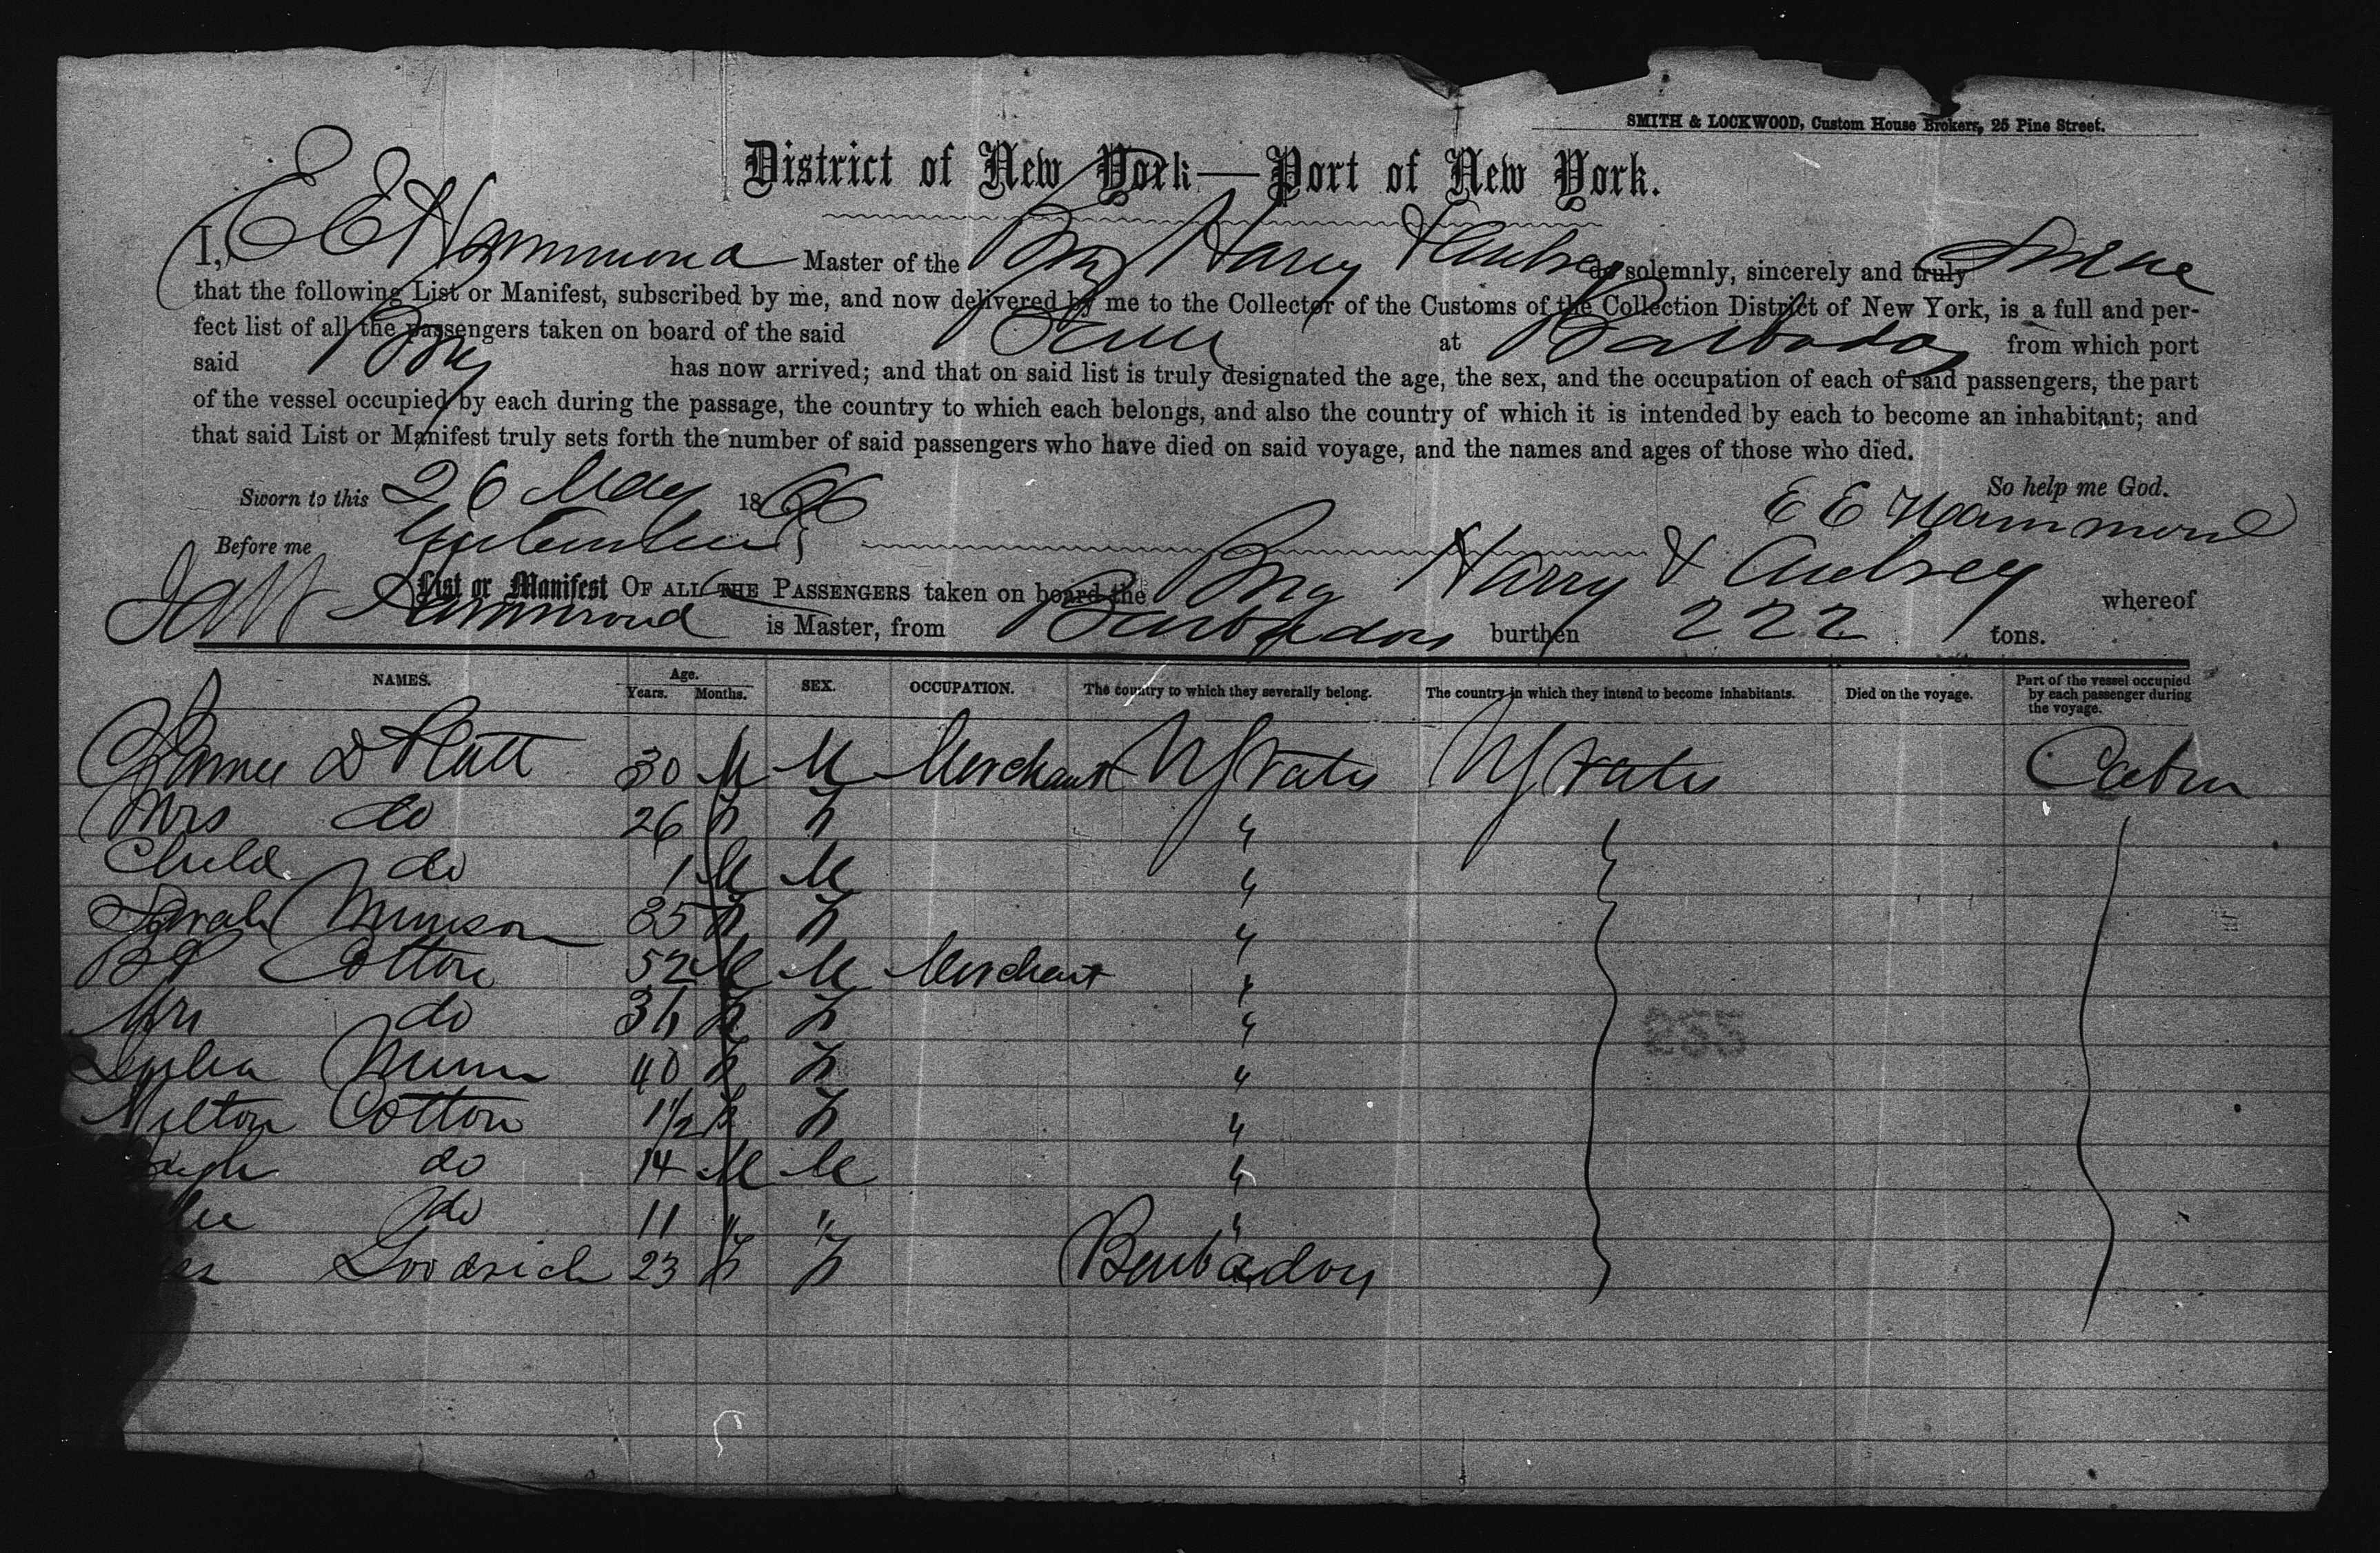 SMITH & LOCKWOOD, Custom House Brokers, 25 Pine Street.
District of New York—Port of New York.
I, E E Hammond Master of the Brig Harry & Aubrey do solemnly, sincerely and truly Swear
that the following List or Manifest, subscribed by me, and now delivered by me to the Collector of the Customs of the Collection District of New York, is a full and per-
fect list of all the passengers taken on board of the said at Barbados from which port
said Brig has now arrived; and that on said list is truly designated the age, the sex, and the occupation of each of said passengers, the part
of the vessel occupied by each during the passage, the country to which each belongs, and also the country of which it is intended by each to become an inhabitant; and
that said List or Manifest truly sets forth the number of said passengers who have died on said voyage, and the names and ages of those who died.
Sworn to this 26 May 1866 So help me God.
E E Hammond
Before me
List or Manifest OF ALL THE PASSENGERS taken on board the Brig Harry & Aubrey whereof
Hammond is Master, from Barbados burthen 222 tons.
NAMES. Age. Years. Months. SEX. OCCUPATION. The country to which they severally belong. The country in which they intend to become inhabitants. Died on the voyage. Part of the vessel occupied by each passenger during the voyage.
James D Platt 30 M M Merchant U States U States Cabin
Mrs do 26 F F "
Child do 1 M M "
Sarah Munson 35 F F "
Cotton 52 M M Merchant "
Mrs do 36 F F "
Julia Munn 40 F F "
Milton Cotton 1 1/2 F F "
do 14 M M "
do 11 " " "
Goodrich 23 F F Barbados